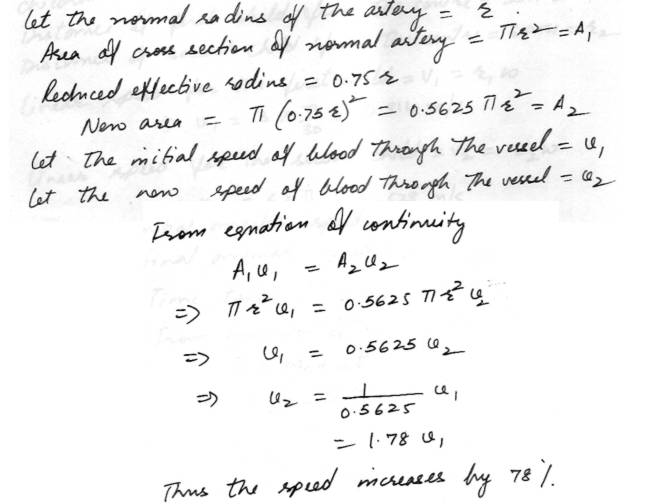 Let the normal radius of the artery = r.
Area of cross section of normal artery = πr² = A₁
Reduced effective radius = 0.75 r
New area = π (0.75 r)² = 0.5625 πr² = A₂
Let the initial speed of blood through the vessel = v₁
Let the new speed of blood through the vessel = v₂
From equation of continuity
A₁v₁ = A₂v₂
=> πr²v₁ = 0.5625 πr²v₂
=> v₁ = 0.5625 v₂
=> v₂ = 1/0.5625 v₁
= 1.78 v₁
Thus the speed increases by 78%.